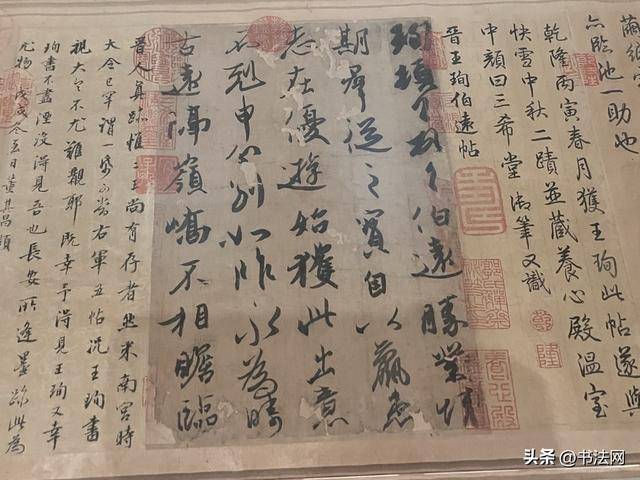 亦臨池一助也
乾隆丙寅春月獲王珣此帖遂與
快雪中秋二蹟並藏養心殿溫室
中顏曰三希堂御筆又識
乾隆
晉王珣伯遠帖
珣頓首頓首伯遠勝業情
期群從之寶自以羸患
志在優遊始獲此出意
不剋申分別如昨永為疇
古遠隔嶺嶠不相瞻臨
晉人真跡惟二王尚有存者然米南宮時
大令已罕謂一紙可當右軍五帖況王珣書
視大令不尤難覯耶既幸予得見王珣又幸
珣書不盡湮沒得見吾也長安所逢墨跡此為
尤物戊戌冬至日董其昌題
头条 @书法网